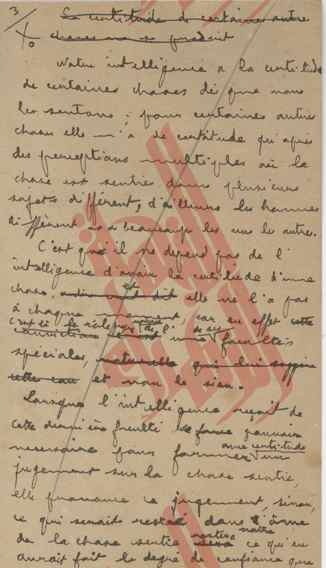 3/ La certitude de certaines autres
choses ne se produit
Notre intelligence a la certitude
de certaines choses dès que nous
les sentons ; pour certaines autres
choses elle n'a de certitude qu'après
des perceptions multiples où la
chose est sentie dans plusieurs
sujets différents, d'ailleurs les hommes
diffèrent beaucoup les uns les autres.
C'est qu'il ne dépend pas de l'
intelligence d'avoir la certitude d'une
chose, et elle ne l'a pas
à chaque moment car en effet cette
c'est là le rôle de l' une des facultés
spéciales, naturelle qui lui
et non le sien.
Lorsque l'intelligence reçoit de
cette dernière faculté la force
nécessaire pour formuler avec certitude un
jugement sur la chose sentie,
elle prononce ce jugement sinon,
ce qui serait resté dans l'âme
de la chose sentie restera ce qu'en
aurait fait le degré de confiance que